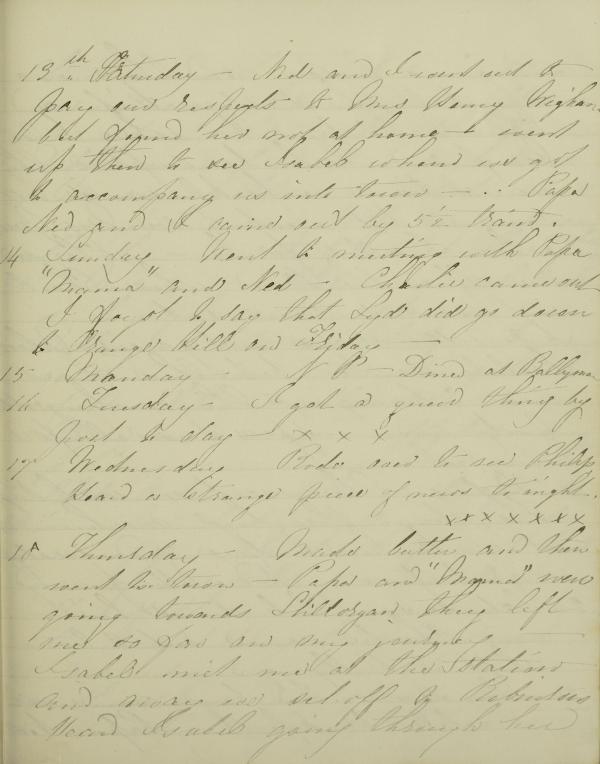 13th Saturday - Ned and I went out to
pay our respects to Mrs Henry Wigham
but found her not at home - went
up then to see Isabel whend we got
to accompany us into town - . . Papa
Ned and I came out by 5½ train.
14 Sunday Went to meeting with Papa
"Mama" and Ned - Charlie came out
I forgot to say that Lyd did go down
to Grange Hill on Friday -
15 Monday - N P - Dined at
16 Tuesday - I got a queer thing by
post to day - x x x
17 Wednesday Rode over to see Philip
Heard a strange piece of news to night.
x x x x x x x
18 Thursday - Made butter and then
went to town - Papa and "Mama" were
going towards Stillorgan they left
me so far on my journey
Isabel met me at the station
and away we set off to
Heard Isabel going through her